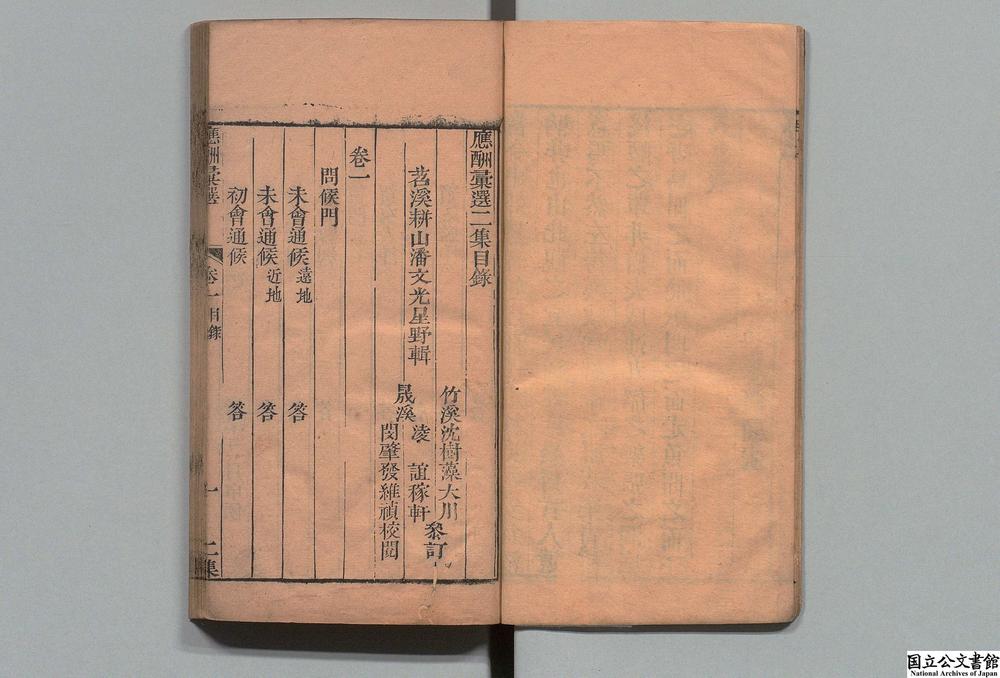 應酬彙選二集目錄
苕溪耕山潘文光星野輯
竹溪沈樹藻大川
晟溪 凌 誼稼軒 叅訂
閔肇發維禎校閱
卷一
問候門
未會通候 遠地 答
未會通候 近地 答
初會通候 答
應酬彙選 卷一目錄 一 二集
国立公文書館
National Archives of Japan